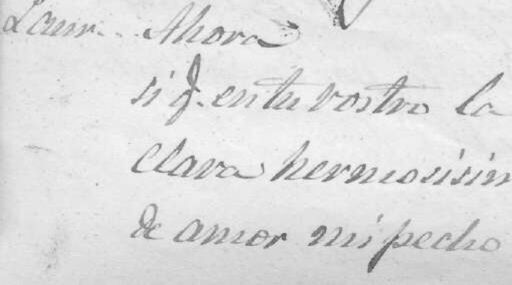 Laur. Ahora
si q. en tu rostro la
clara hermosisim
de amor mi pecho